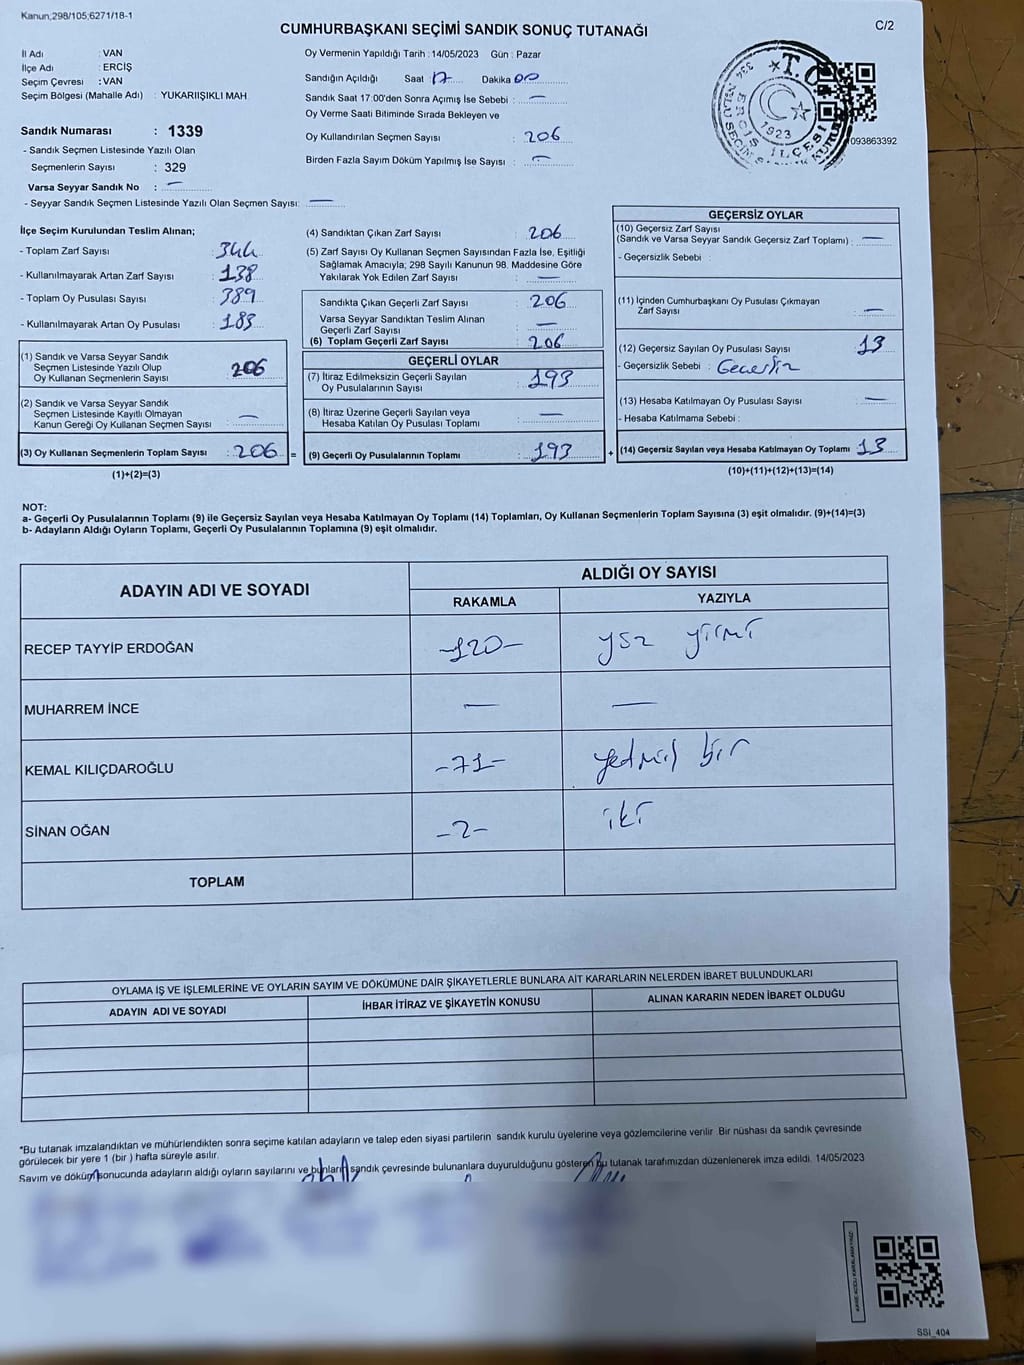 Kanun;298/105;6271/18-1
C/2
CUMHURBAŞKANI SEÇİMİ SANDIK SONUÇ TUTANAĞI
İl Adı : VAN
İlçe Adı : ERCİŞ
Seçim Çevresi : VAN
Seçim Bölgesi (Mahalle Adı) : YUKARIIŞIKLI MAH
Sandık Numarası : 1339
- Sandık Seçmen Listesinde Yazılı Olan
Seçmenlerin Sayısı : 329
Varsa Seyyar Sandık No : —
- Seyyar Sandık Seçmen Listesinde Yazılı Olan Seçmen Sayısı: —
Oy Vermenin Yapıldığı Tarih : 14/05/2023 Gün : Pazar
Sandığın Açıldığı Saat 17 Dakika 00
Sandık Saat 17:00'den Sonra Açımış İse Sebebi : —
Oy Verme Saati Bitiminde Sırada Bekleyen ve
Oy Kullandırılan Seçmen Sayısı : 206
Birden Fazla Sayım Döküm Yapılmış İse Sayısı : —
T.C.
1923
ERCİŞ İLÇESİ
334
093863392
İlçe Seçim Kurulundan Teslim Alınan;
- Toplam Zarf Sayısı : 344
- Kullanılmayarak Artan Zarf Sayısı : 138
- Toplam Oy Pusulası Sayısı : 389
- Kullanılmayarak Artan Oy Pusulası : 183
(1) Sandık ve Varsa Seyyar Sandık
Seçmen Listesinde Yazılı Olup
Oy Kullanan Seçmenlerin Sayısı : 206
(2) Sandık ve Varsa Seyyar Sandık
Seçmen Listesinde Kayıtlı Olmayan
Kanun Gereği Oy Kullanan Seçmen Sayısı : —
(3) Oy Kullanan Seçmenlerin Toplam Sayısı : 206 =
(1)+(2)=(3)
(4) Sandıktan Çıkan Zarf Sayısı : 206
(5) Zarf Sayısı Oy Kullanan Seçmen Sayısından Fazla İse, Eşitliği
Sağlamak Amacıyla; 298 Sayılı Kanunun 98. Maddesine Göre
Yakılarak Yok Edilen Zarf Sayısı : —
Sandıkta Çıkan Geçerli Zarf Sayısı : 206
Varsa Seyyar Sandıktan Teslim Alınan
Geçerli Zarf Sayısı : —
(6) Toplam Geçerli Zarf Sayısı : 206
GEÇERLİ OYLAR
(7) İtiraz Edilmeksizin Geçerli Sayılan
Oy Pusulalarının Sayısı : 193
(8) İtiraz Üzerine Geçerli Sayılan veya
Hesaba Katılan Oy Pusulası Toplamı : —
(9) Geçerli Oy Pusulalarının Toplamı : 193 +
GEÇERSİZ OYLAR
(10) Geçersiz Zarf Sayısı
(Sandık ve Varsa Seyyar Sandık Geçersiz Zarf Toplamı) : —
- Geçersizlik Sebebi :
(11) İçinden Cumhurbaşkanı Oy Pusulası Çıkmayan
Zarf Sayısı : —
(12) Geçersiz Sayılan Oy Pusulası Sayısı : 13
- Geçersizlik Sebebi : Gecersiz
(13) Hesaba Katılmayan Oy Pusulası Sayısı : —
- Hesaba Katılmama Sebebi :
(14) Geçersiz Sayılan veya Hesaba Katılmayan Oy Toplamı : 13
(10)+(11)+(12)+(13)=(14)
NOT:
a- Geçerli Oy Pusulalarının Toplamı (9) ile Geçersiz Sayılan veya Hesaba Katılmayan Oy Toplamı (14) Toplamları, Oy Kullanan Seçmenlerin Toplam Sayısına (3) eşit olmalıdır. (9)+(14)=(3)
b- Adayların Aldığı Oyların Toplamı, Geçerli Oy Pusulalarının Toplamına (9) eşit olmalıdır.
ADAYIN ADI VE SOYADI ALDIĞI OY SAYISI
RAKAMLA YAZIYLA
RECEP TAYYİP ERDOĞAN -120- yüz yirmi
MUHARREM İNCE — —
KEMAL KILIÇDAROĞLU -71- yedmiş bir
SİNAN OĞAN -2- iki
TOPLAM
OYLAMA İŞ VE İŞLEMLERİNE VE OYLARIN SAYIM VE DÖKÜMÜNE DAİR ŞİKAYETLERLE BUNLARA AİT KARARLARIN NELERDEN İBARET BULUNDUKLARI
ADAYIN ADI VE SOYADI İHBAR İTİRAZ VE ŞİKAYETİN KONUSU ALINAN KARARIN NEDEN İBARET OLDUĞU
*Bu tutanak imzalandıktan ve mühürlendikten sonra seçime katılan adayların ve talep eden siyasi partilerin sandık kurulu üyelerine veya gözlemcilerine verilir. Bir nüshası da sandık çevresinde
görülecek bir yere 1 (bir ) hafta süreyle asılır.
Sayım ve döküm sonucunda adayların aldığı oyların sayılarını ve bunların sandık çevresinde bulunanlara duyurulduğunu gösteren bu tutanak tarafımızdan düzenlenerek imza edildi. 14/05/2023
SSI_404